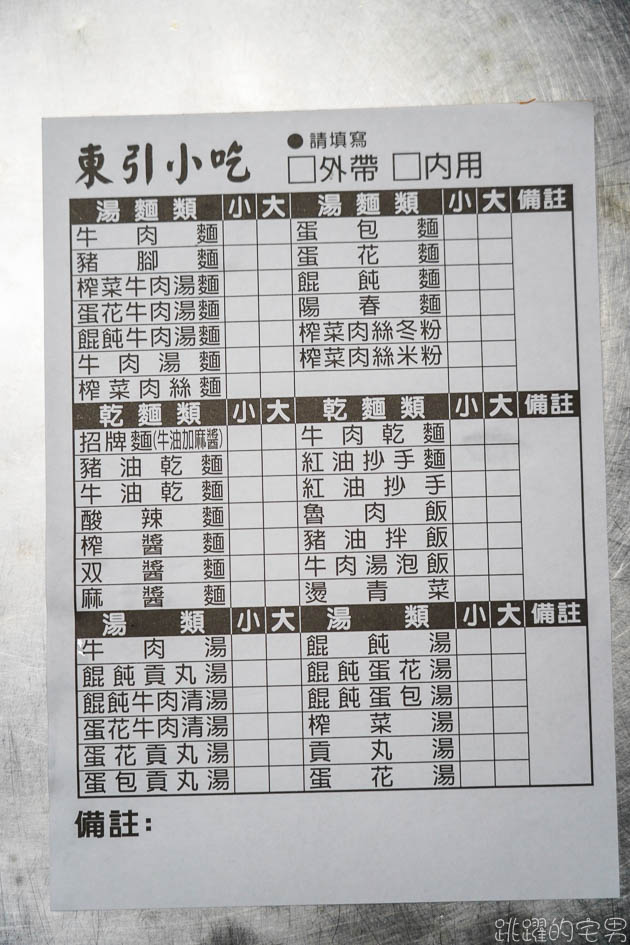 東引小吃
●請填寫
□外帶 □內用
湯麵類 小 大 湯麵類 小 大 備註
牛肉麵 蛋包麵
豬腳麵 蛋花麵
榨菜牛肉湯麵 餛飩麵
蛋花牛肉湯麵 陽春麵
餛飩牛肉湯麵 榨菜肉絲冬粉
牛肉湯麵 榨菜肉絲米粉
榨菜肉絲麵
乾麵類 小 大 乾麵類 小 大 備註
招牌麵(牛油加麻醬) 牛肉乾麵
豬油乾麵 紅油抄手麵
牛油乾麵 紅油抄手
酸辣麵 魯肉飯
榨醬麵 豬油拌飯
双醬麵 牛肉湯泡飯
麻醬麵 燙青菜
湯類 小 大 湯類 小 大 備註
牛肉湯 餛飩湯
餛飩貢丸湯 餛飩蛋花湯
餛飩牛肉清湯 餛飩蛋包湯
蛋花牛肉清湯 榨菜湯
蛋花貢丸湯 貢丸湯
蛋包貢丸湯 蛋花湯
備註:
跳躍的宅男